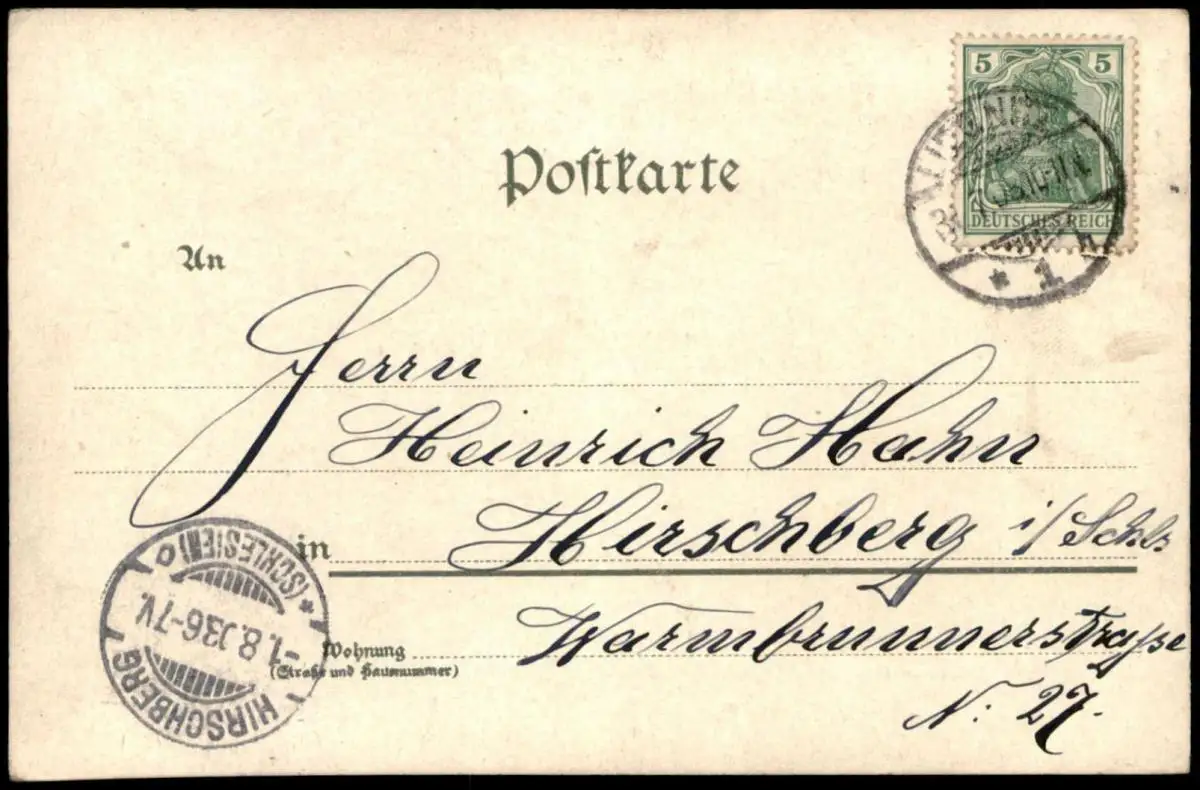 5 5
DEUTSCHES REICH
* 1
Postkarte
An
Herrn
Heinrich Hahn
in Hirschberg i/Schls
Wohnung
(Straße und Hausnummer)
Warmbrunnerstraße
N: 27.
HIRSCHBERG
(SCHLESIEN)
-1.8.03 6-7V.
*